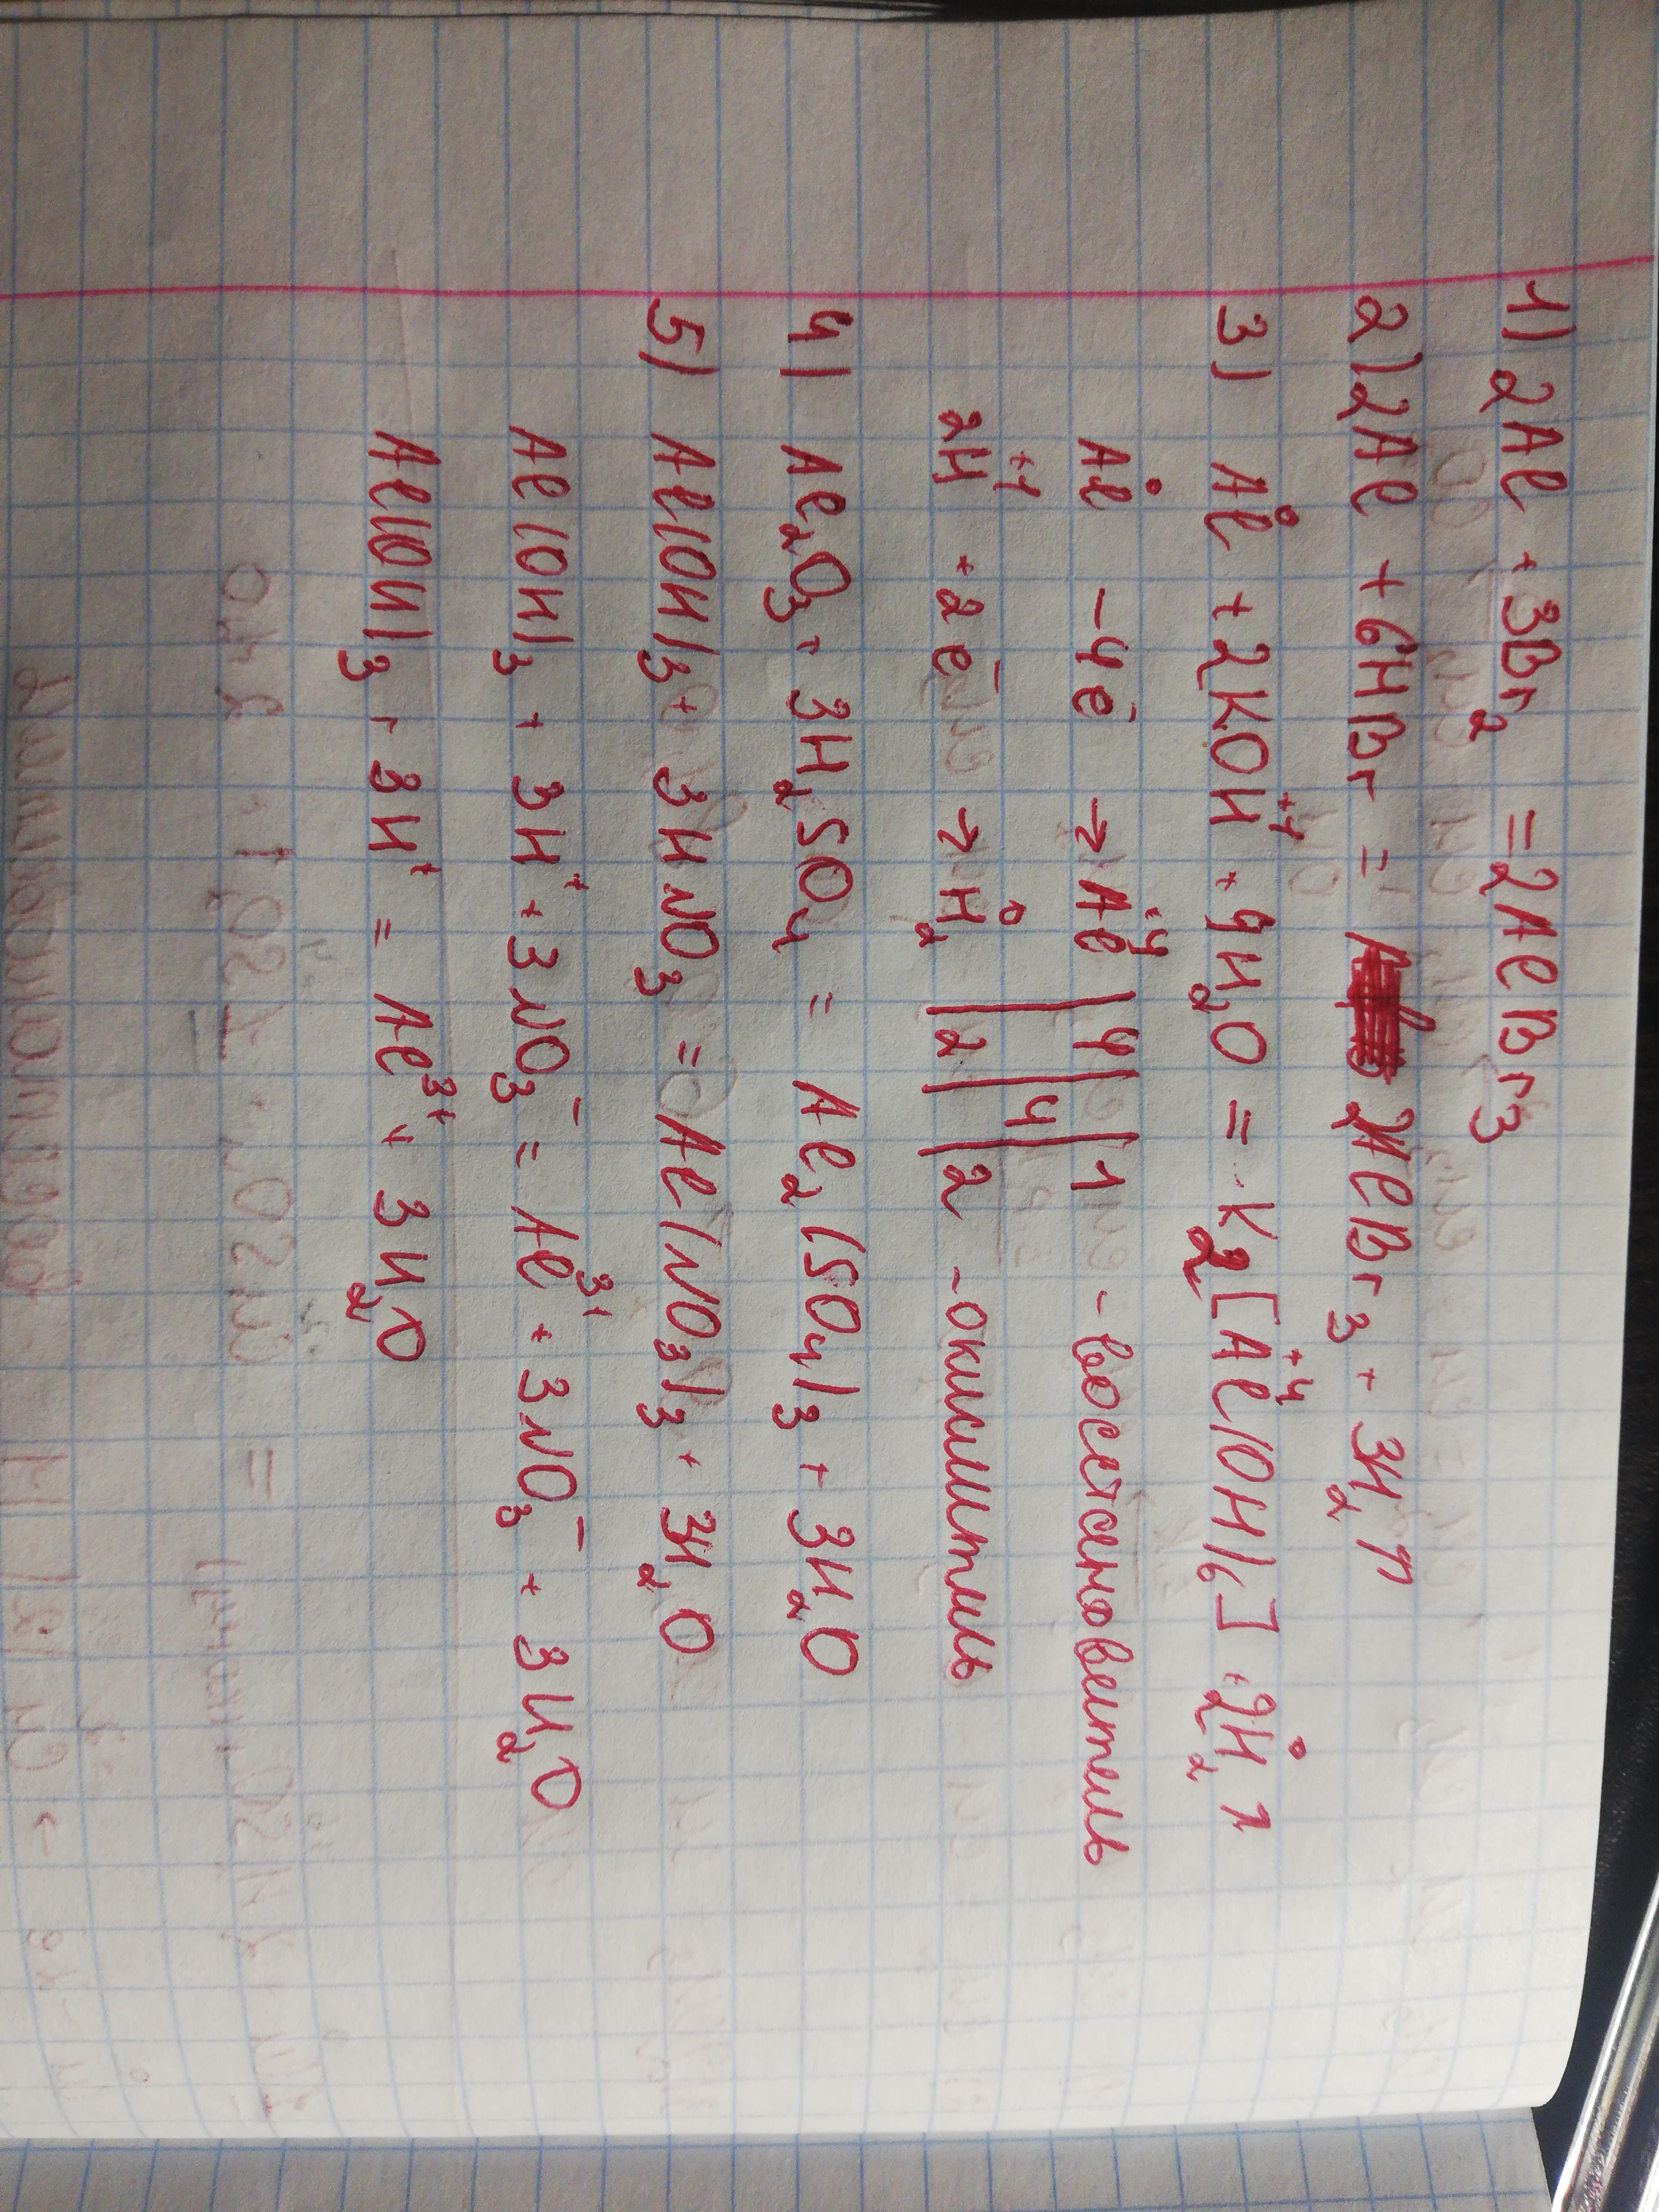 1) 2Al + 3Br₂ = 2AlBr₃
2) 2Al + 6HBr = 2AlBr₃ + 3H₂ ↑
3) Al⁰ + 2KOH⁺¹ + 4H₂O = K₂[Al⁺⁴(OH)₆] + 2H₂⁰ ↑
Al⁰ - 4e⁻ → Al⁺⁴ | 4 | 4 | 1 - восстановитель
2H⁺¹ + 2e⁻ → H₂⁰ | 2 | 4 | 2 - окислитель
4) Al₂O₃ + 3H₂SO₄ = Al₂(SO₄)₃ + 3H₂O
5) Al(OH)₃ + 3HNO₃ = Al(NO₃)₃ + 3H₂O
Al(OH)₃ + 3H⁺ + 3NO₃⁻ = Al³⁺ + 3NO₃⁻ + 3H₂O
Al(OH)₃ + 3H⁺ = Al³⁺ + 3H₂O